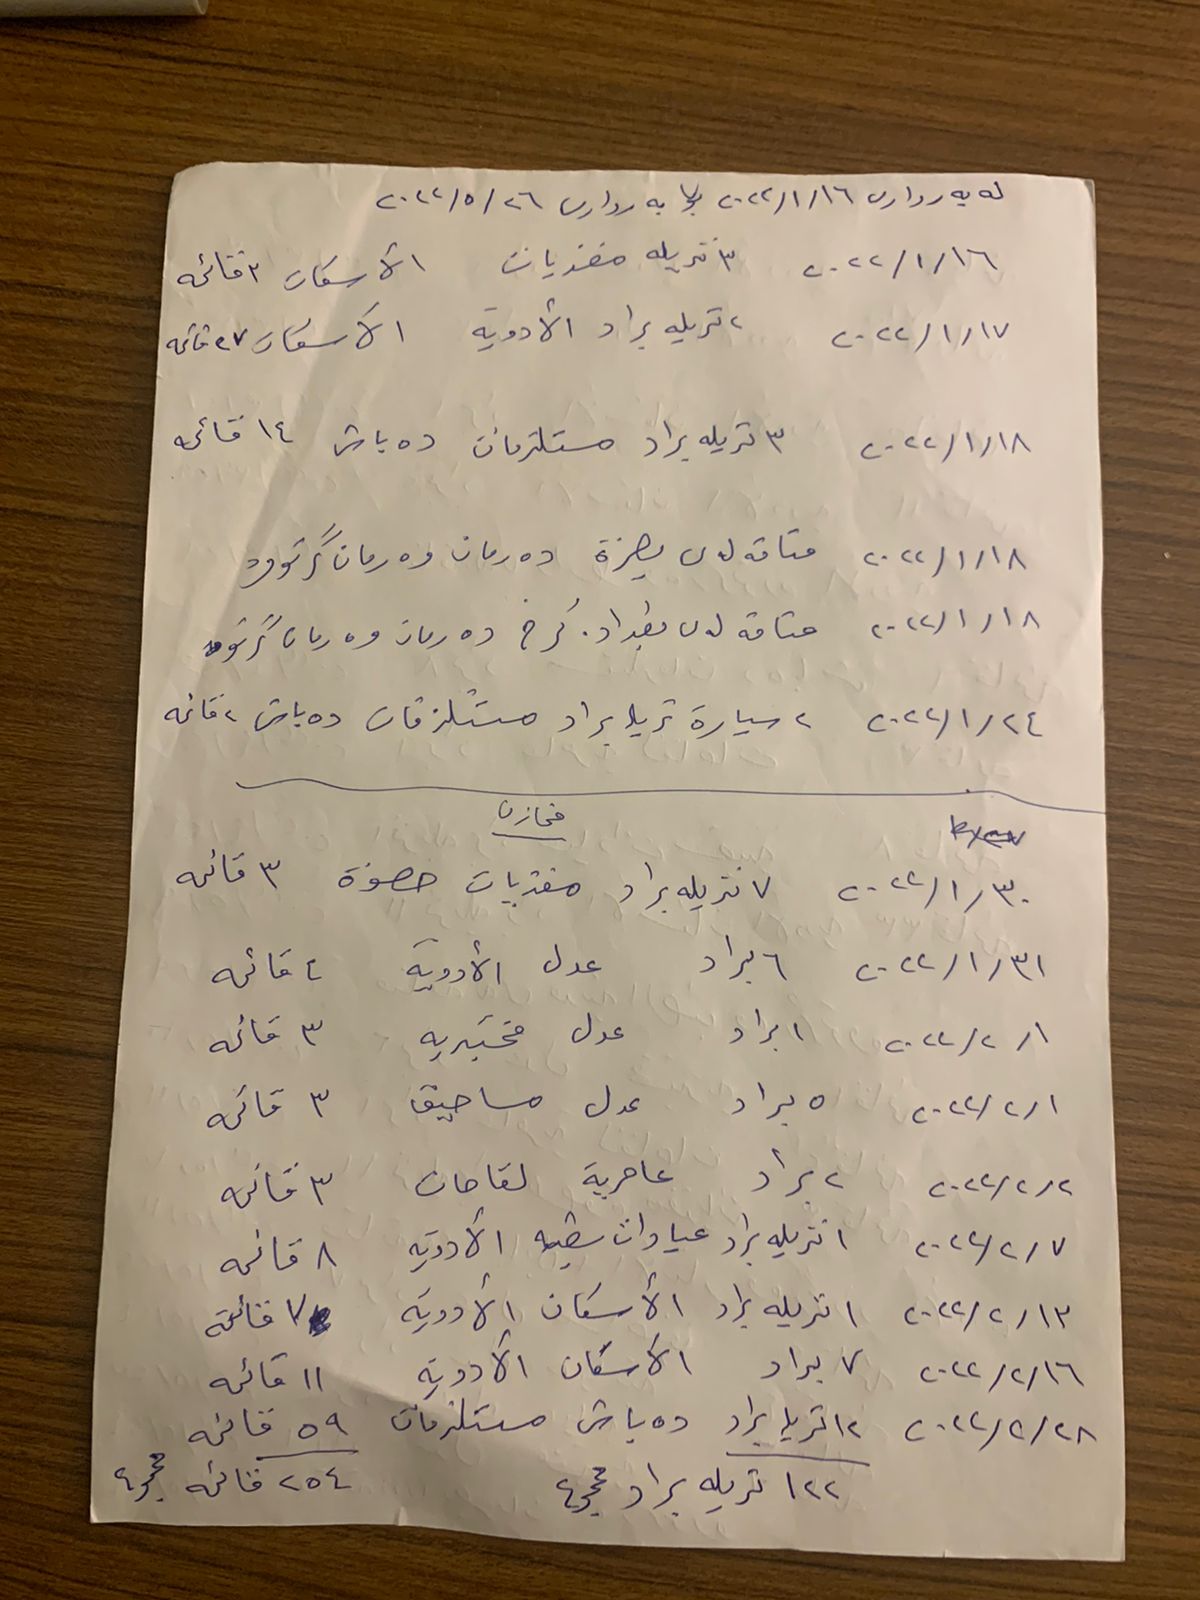 لە بەرواری ٢٠٢٢/١/١٦ بۆ بەرواری ٢٠٢٢/٥/٢٦
٢٠٢٢/١/١٦ ٣ تریله مغذیات الأسکان ٣ قائمه
٢٠٢٢/١/١٧ ٢ تریله براد الأدویة الأسکان ٢٧ قائمه
٢٠٢٢/١/١٨ ٣ تریله براد مستلزمات دەباش ١٤ قائمه
٢٠٢٢/١/١٨ لەی بصرة دەرمان وەرمان گرتوە
٢٠٢٢/١/١٨ لەی بغداد. کرخ دەرمان وەرمان گرتوە
٢٠٢٢/١/٢٤ ٢ سیارة تریلە براد مستلزمات دەباش ٢ قائمه
مخازن
٢٠٢٢/١/٣٠ ٧ تریله براد مغذیات حصوة ٣ قائمه
٢٠٢٢/١/٣١ ٦ براد عدل الأدویة ٤ قائمه
٢٠٢٢/٢/١ ١ براد عدل مختبریه ٣ قائمه
٢٠٢٢/٢/١ ٥ براد عدل مساحیق ٣ قائمه
٢٠٢٢/٢/٢ ٢ براد عامریة لقاحات ٣ قائمه
٢٠٢٢/٢/٧ ١ تریله براد عیادات شعبیه الأدویة ٨ قائمه
٢٠٢٢/٢/١٣ ١ تریله براد الأسکان الأدویة ٧ قائمة
٢٠٢٢/٢/١٦ ٧ براد الأسکان الأدویة ١١ قائمه
٢٠٢٢/٢/٢٨ ١٢ تریلە براد دەباش مستلزمات ٥٩ قائمه
١٢٢ تریله براد ٢٥٤ قائمه